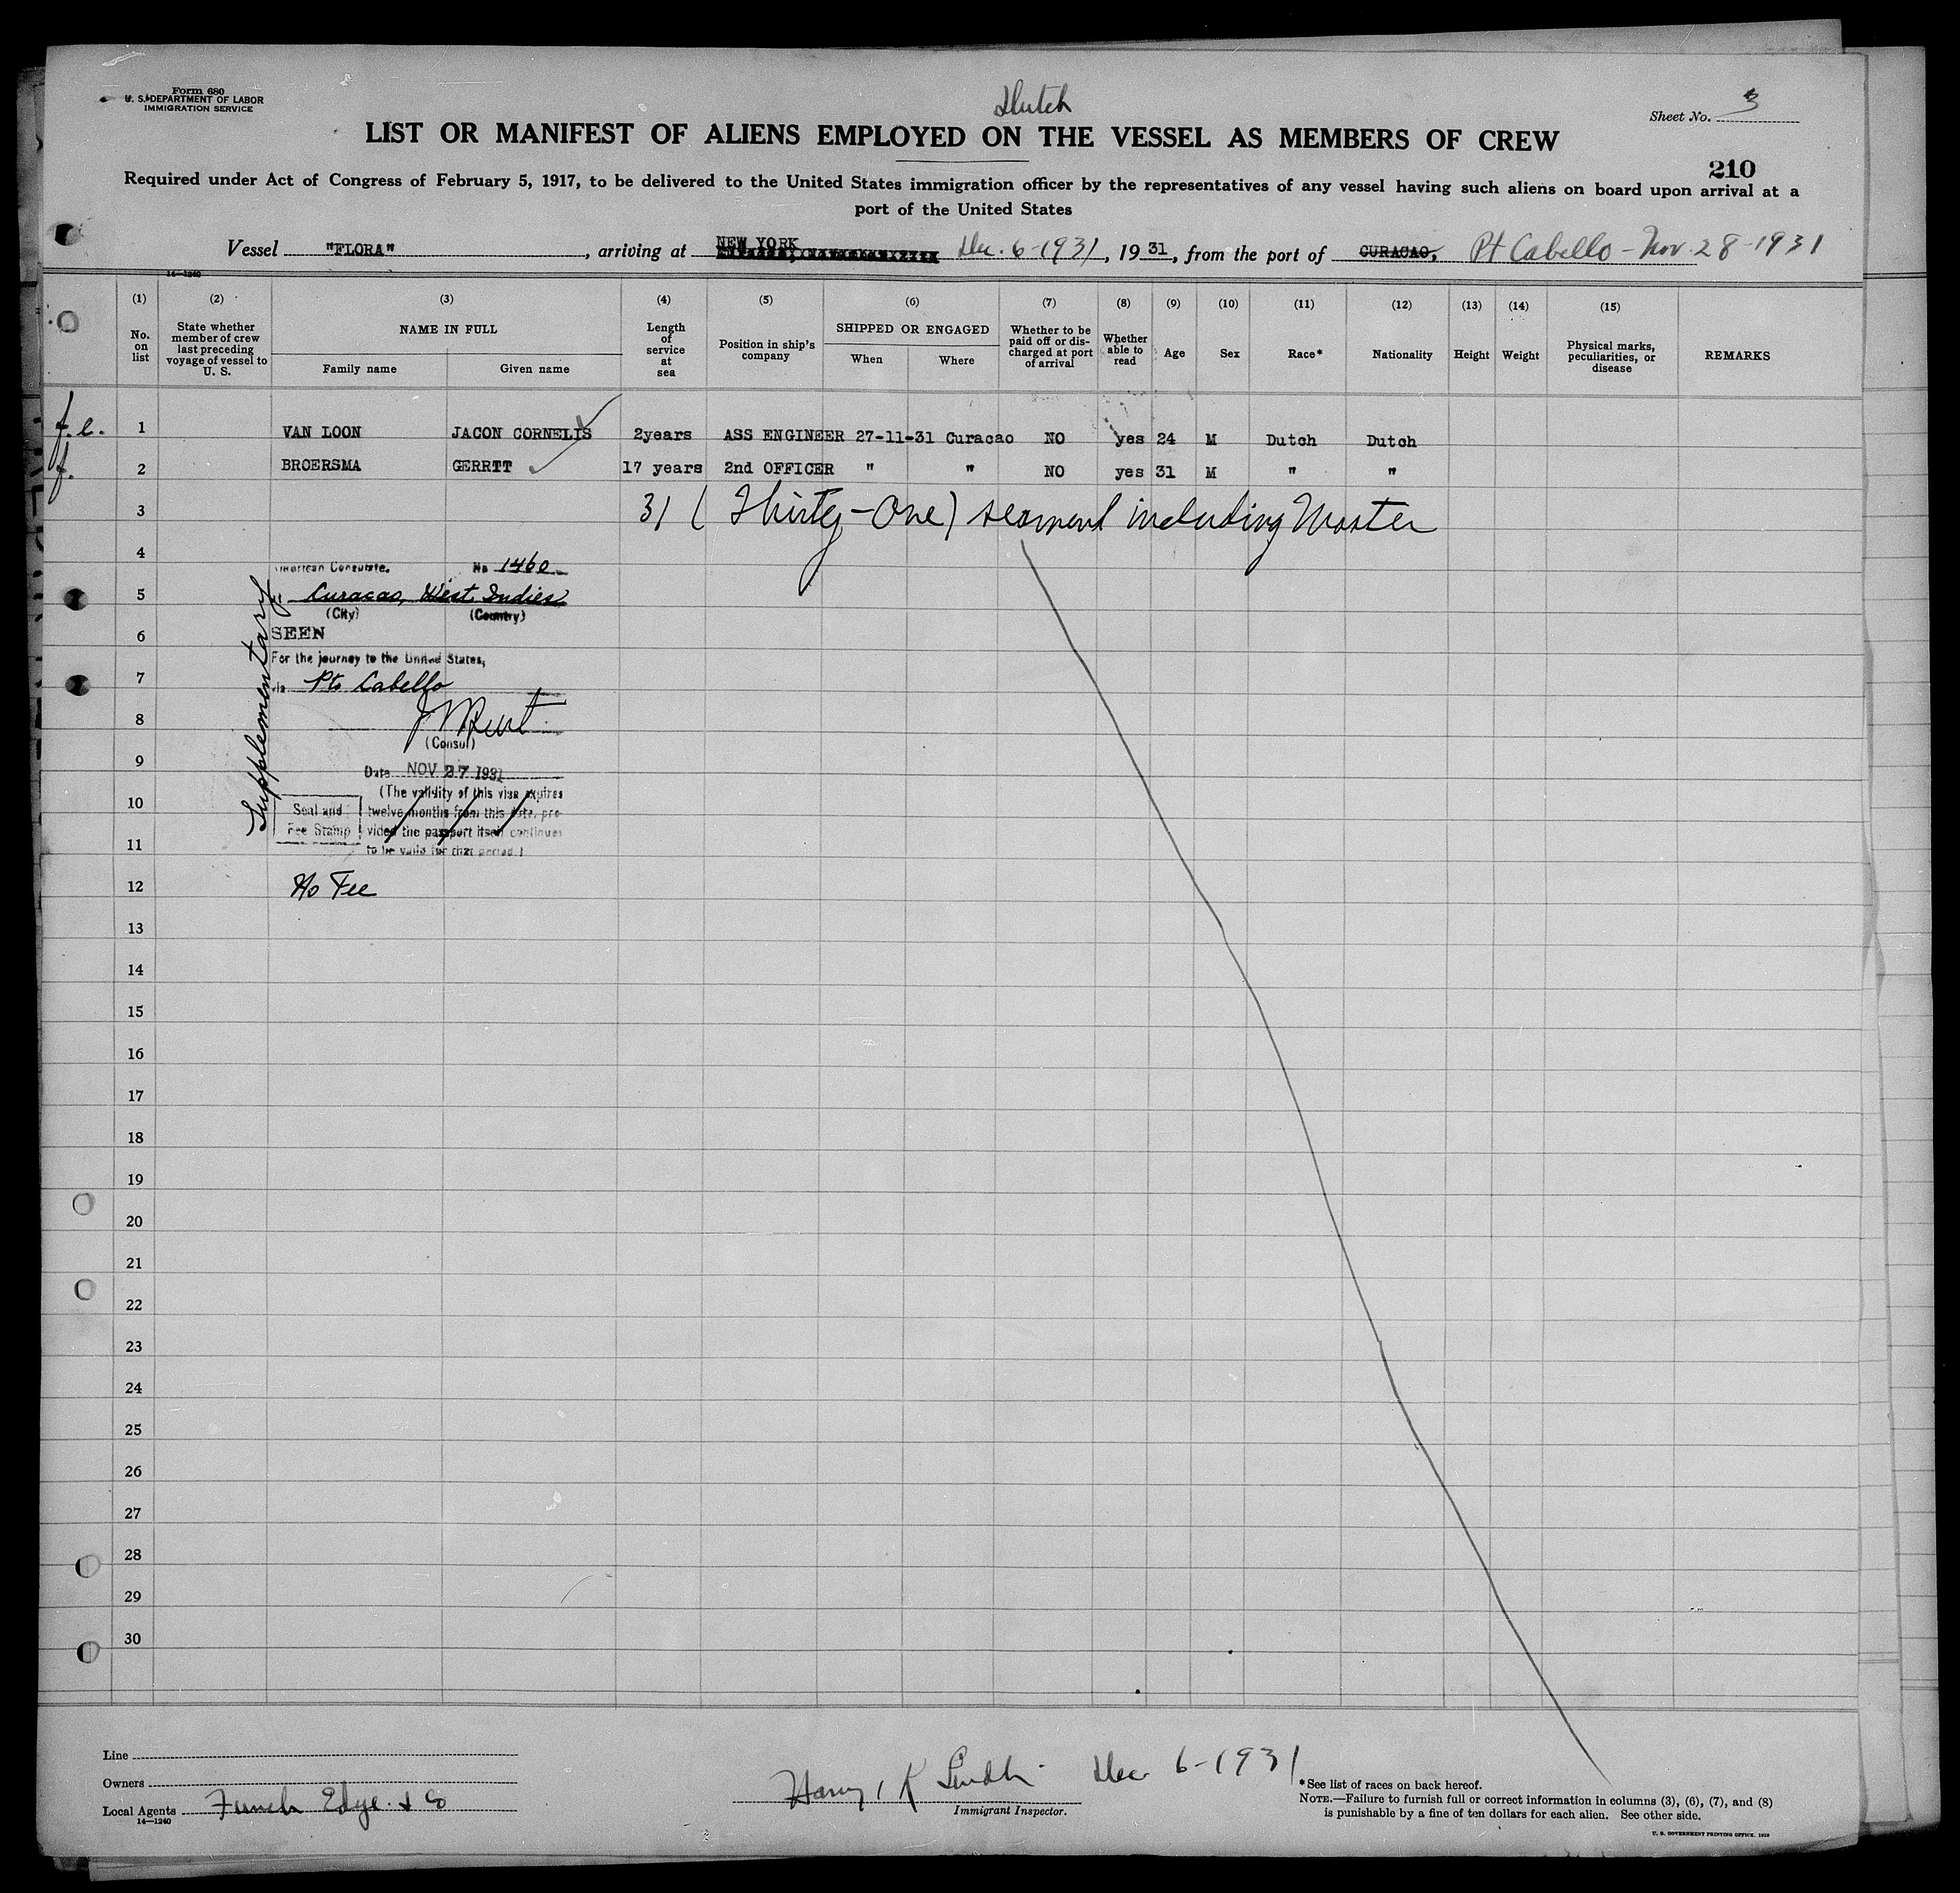 Form 680
U. S. DEPARTMENT OF LABOR
IMMIGRATION SERVICE
Dutch
Sheet No. 3
LIST OR MANIFEST OF ALIENS EMPLOYED ON THE VESSEL AS MEMBERS OF CREW
210
Required under Act of Congress of February 5, 1917, to be delivered to the United States immigration officer by the representatives of any vessel having such aliens on board upon arrival at a
port of the United States
Vessel "FLORA", arriving at NEW YORK Dec. 6-1931, 1931, from the port of CURACAO, Pt Cabello - Nov. 28-1931
14—1240
(1) (2) (3) (4) (5) (6) (7) (8) (9) (10) (11) (12) (13) (14) (15)
No. on list
State whether member of crew last preceding voyage of vessel to U. S.
NAME IN FULL
Family name
Given name
Length of service at sea
Position in ship's company
SHIPPED OR ENGAGED
When
Where
Whether to be paid off or discharged at port of arrival
Whether able to read
Age
Sex
Race*
Nationality
Height
Weight
Physical marks, peculiarities, or disease
REMARKS
f.e. 1 VAN LOON JACON CORNELIS 2years ASS ENGINEER 27-11-31 Curacao NO yes 24 M Dutch Dutch
f. 2 BROERSMA GERRIT 17 years 2nd OFFICER " " NO yes 31 M " "
3 31 (Thirty-One) seamen including Master
4
American Consulate. No 1460
5
Curacao, West Indies
(City) (Country)
6
SEEN
For the journey to the United States,
7
via Pto Cabello
8
(Consul)
9
Date NOV 27 1931
(The validity of this visa expires
10
Seal and
Fee Stamp
twelve months from this date, pro-
vided the passport itself continues
11
to be valid for that period.)
Supplementary
12
No Fee
13
14
15
16
17
18
19
20
21
22
23
24
25
26
27
28
29
30
Line
Owners
Local Agents Funch Edye & Co
14—1240
Harry K Dec 6-1931
Immigrant Inspector.
*See list of races on back hereof.
NOTE.—Failure to furnish full or correct information in columns (3), (6), (7), and (8)
is punishable by a fine of ten dollars for each alien. See other side.
U. S. GOVERNMENT PRINTING OFFICE